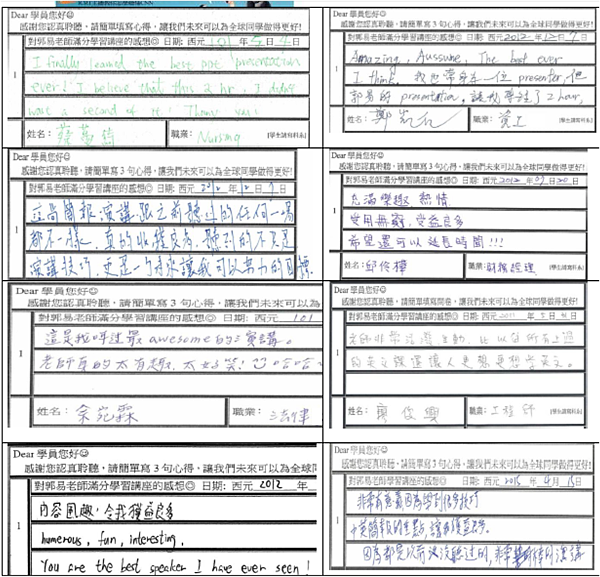 Dear 學員您好☺
感謝您認真聆聽,請簡單填寫心得,讓我們未來可以為全球同學做得更好!
對郭易老師滿分學習講座的感想☺ 日期: 西元 101 年 5 月 4 日
1
I finally learned the best ppt presentation
ever! I believe that this 2 hr, I didn't
waste a second of it! Thank you!
姓名:
職業: Nursing
[學生請寫科系]
感謝您認真聆聽,請簡單寫3句心得,讓我們未來可以為全球同學做得更好!
對郭易老師滿分學習講座的感想☺ 日期: 西元 2012 年 12 月 7 日
1
Amazing, Aussume, The best ever
I think. 我也常身在一位 presenter, 但
郭易的 presentation, 讓我專注了 2 hour,
姓名:
職業:
[學生請寫科系]
Dear 學員您好☺
感謝您認真聆聽,請簡單寫3句心得,讓我們未來可以為全球同學做得更好!
對郭易老師滿分學習講座的感想☺ 日期: 西元 2012 年 12 月 7 日
1
這場簡報演講,跟之前聽过的任何一場
都不一樣,真的收穫良多,聽到的不只是
演講技巧,更是一个未來讓我可以努力的目標.
Dear 學員您好☺
感謝您認真聆聽,請簡單寫3句心得,讓我們未來可以為全球同學做得更好!
對郭易老師滿分學習講座的感想☺ 日期: 西元 2012 年 07 月 20 日
1
充滿樂趣 熱情
受用無窮,受益良多
希望還可以延長時間!!!
姓名: 邱俊樺
職業: 財務經理
[學生請寫科系]
Dear 學員您好☺
感謝您認真聆聽,請簡單寫3句心得,讓我們未來可以為
對郭易老師滿分學習講座的感想☺ 日期: 西元 101
1
這是我聽過最 awesome 的演講。
老師真的太有趣,太好笑! 哈哈
姓名: 余宛霖
職業: 法律
Dear 學員您好☺
感謝您認真聆聽,請簡單填寫問卷,讓我們未來可以為全球同學做得更好!
對郭易老師滿分學習講座的感想☺ 日期: 西元 2011 年 月 日
1
老師非常活潑生動,比以前所有上過
的英文課還讓人更想更想學英文。
姓名: 廖俊
職業: 工程師
[學生請寫科系]
Dear 學員您好☺
感謝您認真聆聽,請簡單寫3句心得,讓我們未來可以為全球
對郭易老師滿分學習講座的感想☺ 日期: 西元 2012 年
1
內容風趣,令我獲益良多
humerous, fun, interesting,
You are the best speaker I have ever seen!
Dear 學員您好☺
感謝您認真聆聽,請簡單寫3句心得,讓我們未來可以為全球同學做得更好!
對郭易老師滿分學習講座的感想☺ 日期: 西元 2015 年 4 月 15 日
1
非常有意義因為學到很多技巧
因為都是以前沒聽過的,非常棒的演講